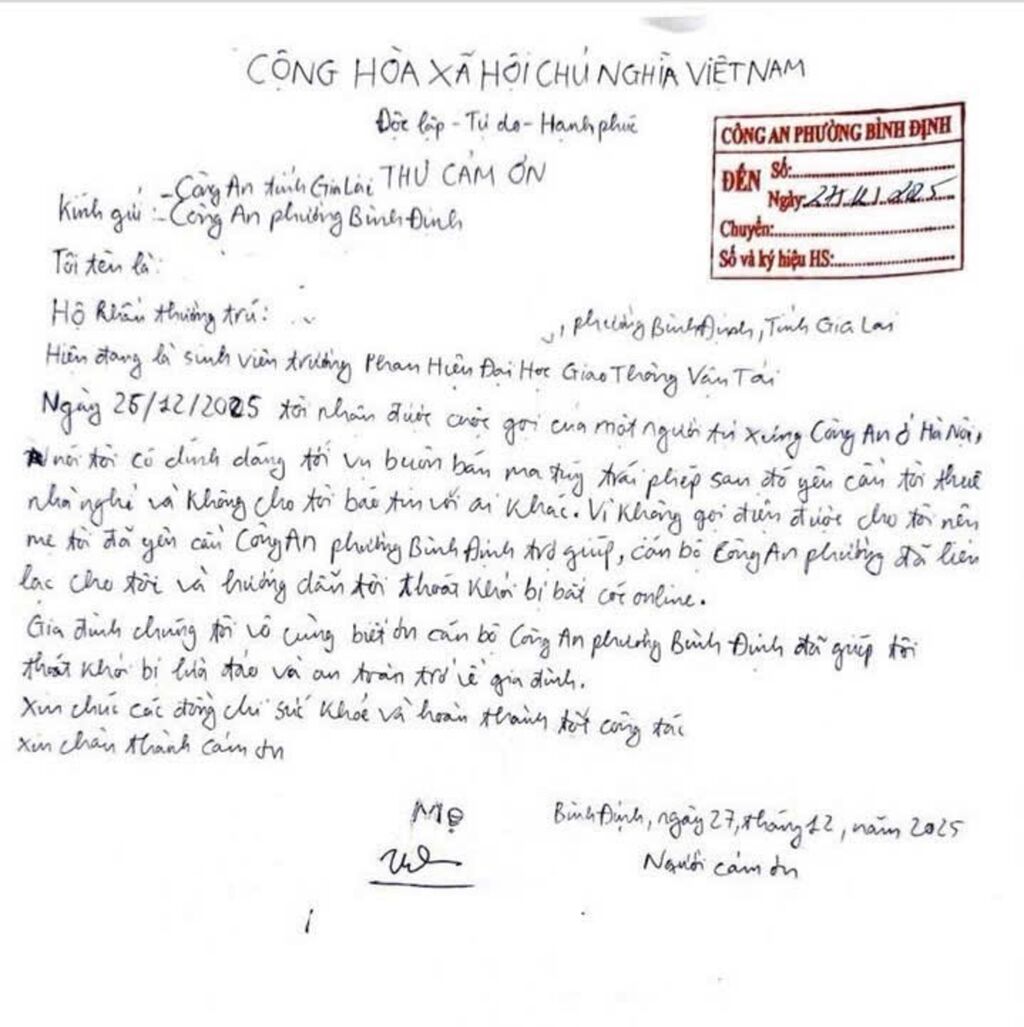 CỘNG HÒA XÃ HỘI CHỦ NGHĨA VIỆT NAM
Độc lập - Tự do - Hạnh phúc
CÔNG AN PHƯỜNG BÌNH ĐỊNH
ĐẾN Số:
Ngày: 27/12/2025
Chuyển:
Số và ký hiệu HS:
THƯ CẢM ƠN
- Công An tỉnh Gia Lai
Kính gửi: - Công An phường Bình Định
Tôi tên là:
Hộ khẩu thường trú: , phường Bình Định, Tỉnh Gia Lai
Hiện đang là sinh viên trường Phan Hiệu Đại Học Giao Thông Vận Tải
Ngày 25/12/2025 tôi nhận được cuộc gọi của một người tự xưng Công An ở Hà Nội,
nói tôi có dính dáng tới vụ buôn bán ma túy trái phép sau đó yêu cầu tôi thuê
nhà nghỉ và không cho tôi báo tin với ai khác. Vì không gọi điện được cho tôi nên
mẹ tôi đã yêu cầu Công An phường Bình Định trợ giúp, cán bộ Công An phường đã liên
lạc cho tôi và hướng dẫn tôi thoát khỏi bị bắt cóc online.
Gia đình chúng tôi vô cùng biết ơn cán bộ Công An phường Bình Định đã giúp tôi
thoát khỏi bị lừa đảo và an toàn trở về gia đình.
Xin chúc các đồng chí sức khỏe và hoàn thành tốt công tác
Xin chân thành cảm ơn
Bình Định, ngày 27, tháng 12, năm 2025
Mẹ
Người cảm ơn